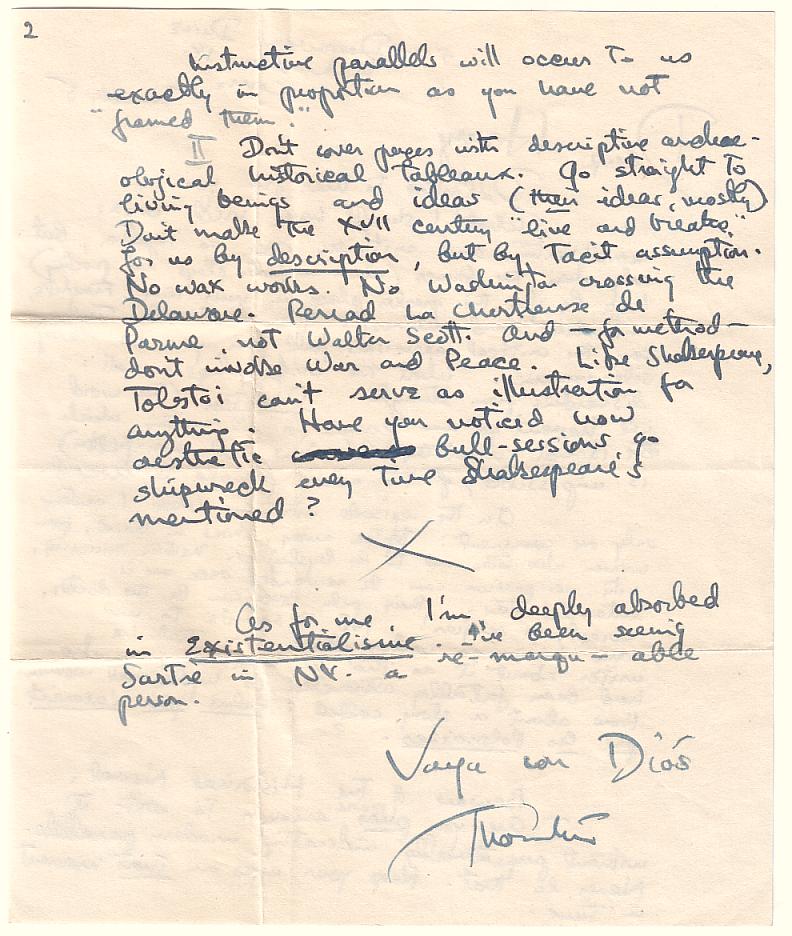 2
Instructive parallels will occur to us
exactly in proportion as you have not
"framed them."
II Don't cover pages with descriptive archae-
ological historical tableaux. Go straight to
living beings and ideas (their ideas, mostly)
Don't make the XVII century "live and breathe"
for us by description, but by tacit assumption.
No wax works. No Washington crossing the
Delaware. Reread La Chartreuse de
Parme, not Walter Scott. And — for method —
don't invoke War and Peace. Like Shakespeare,
Tolstoi can't serve as illustration for
anything. Have you noticed how
aesthetic bull-sessions go
shipwreck every time Shakespeare's
mentioned?
As for me I'm deeply absorbed
in Existentialisme. I've been seeing
Sartre in NY. a re-marqu-able
person.
Vaya con Diós
Thornton